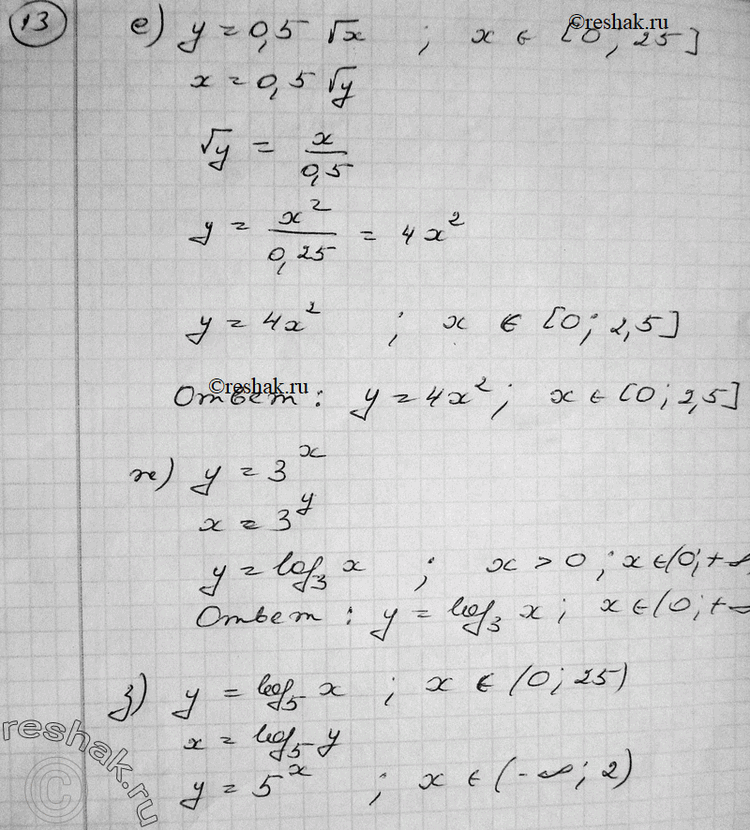 ©reshak.ru
13 е) y = 0,5 √x ; x ∈ [0; 25]
x = 0,5 √y
√y = x/0,5
y = x²/0,25 = 4x²
y = 4x² ; x ∈ [0; 2,5]
©reshak.ru
Ответ: y = 4x²; x ∈ [0; 2,5]
ж) y = 3ˣ
x = 3ʸ
y = log₃ x ; x > 0 ; x ∈ (0; +∞
Ответ: y = log₃ x; x ∈ (0; +∞
з) y = log₅ x ; x ∈ (0; 25)
x = log₅ y
y = 5ˣ ; x ∈ (-∞; 2)
reshak.ru
©